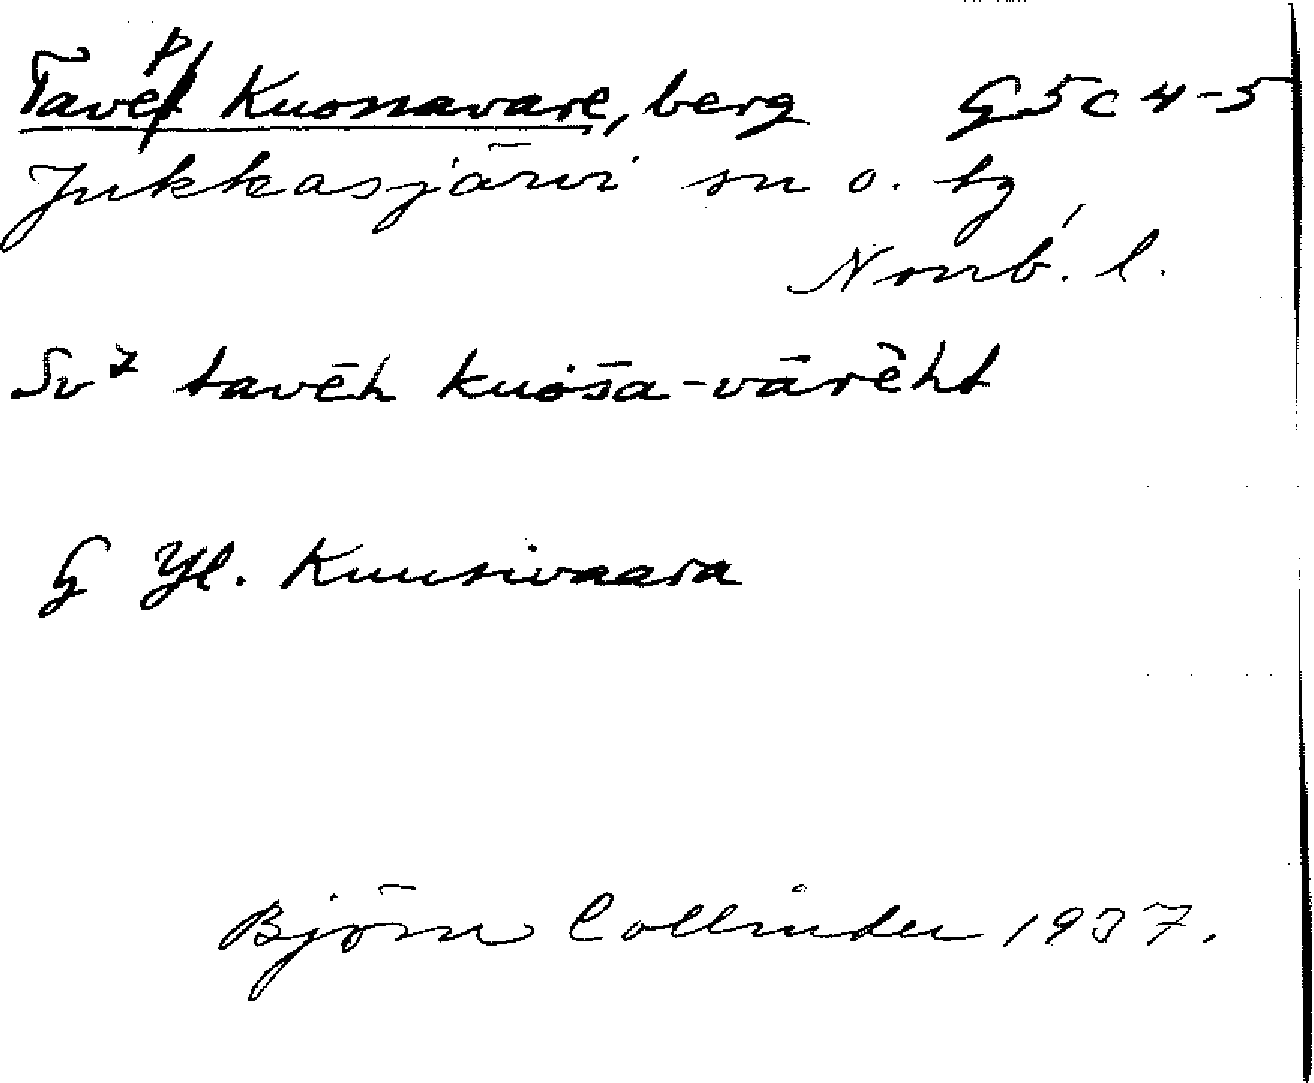 Tavep Kuosavare, berg G5c4-5
Jukkasjärvi sn o. tg
Norrb. l.
Sv² tavēh kuo̧ša-vārēht
G Yl. Kuusivaara
Björn Collinder 1937.